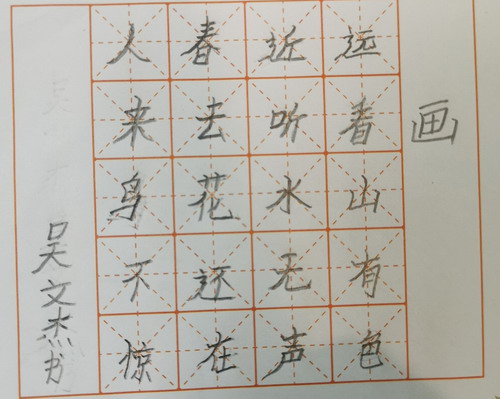 画
远看山有色
近听水无声
春去花还在
人来鸟不惊
吴文杰书